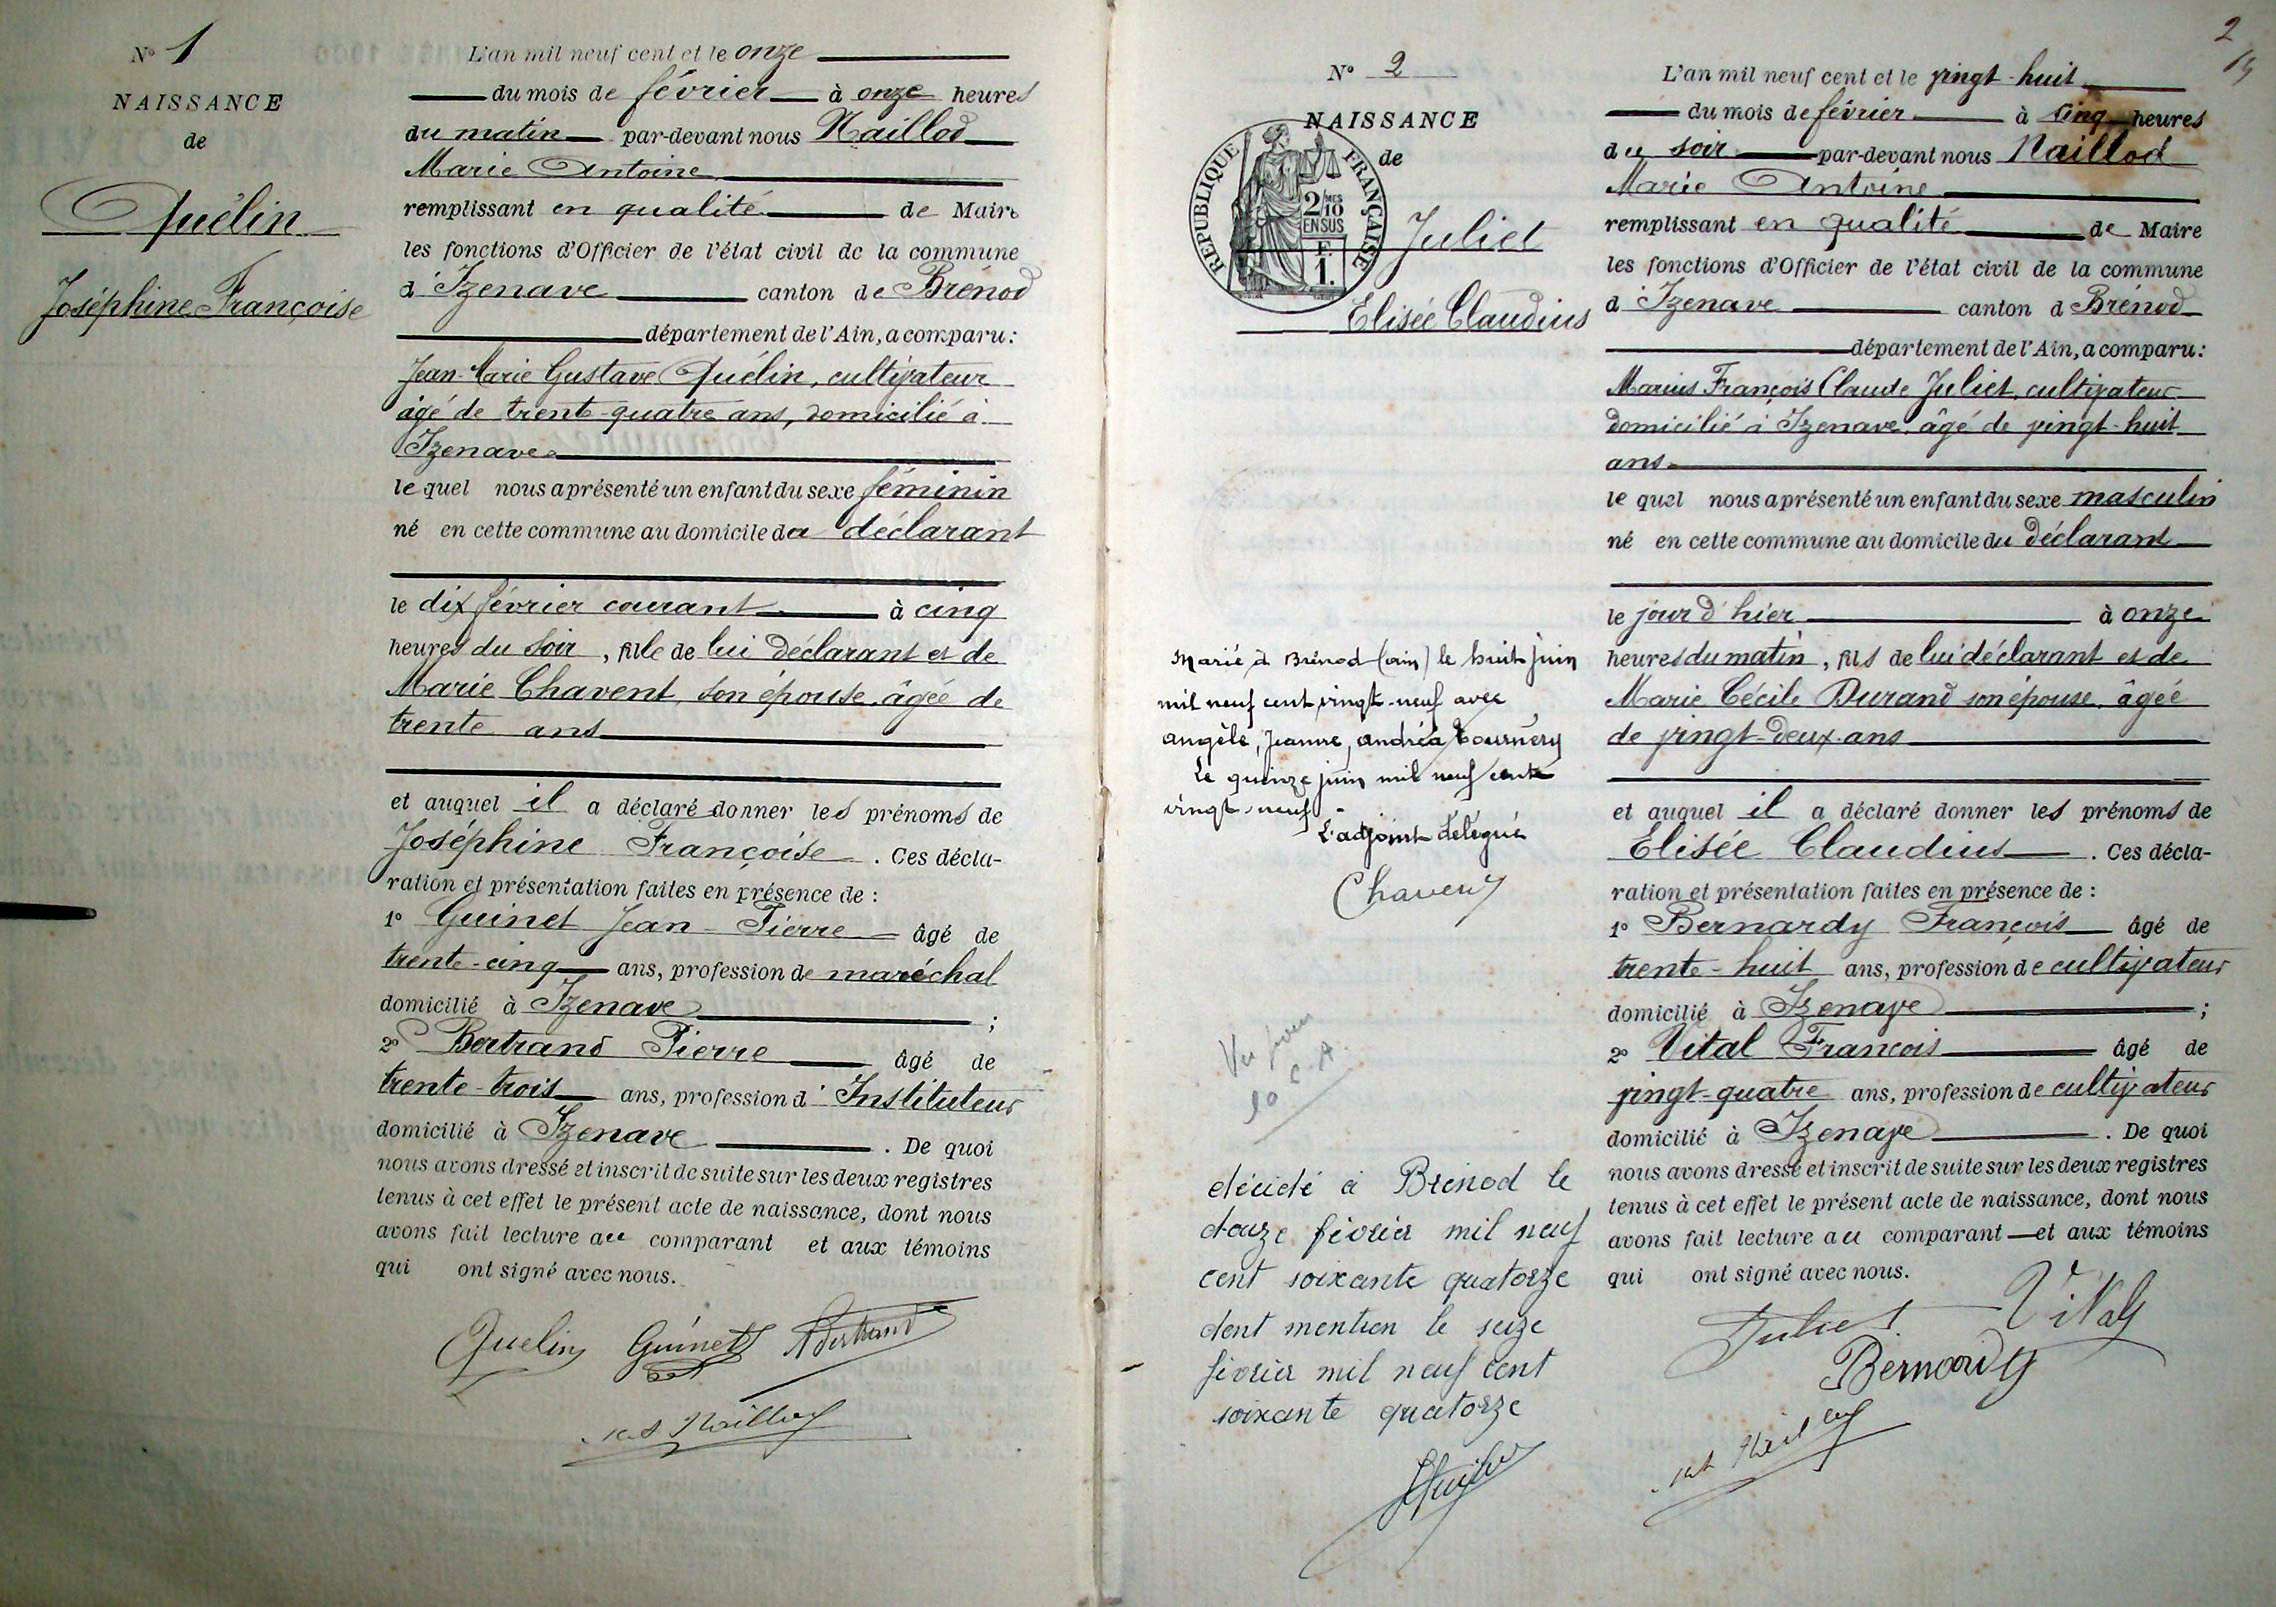 N° 1
NAISSANCE
de
Quélin
Joséphine Françoise
L'an mil neuf cent et le onze
du mois de février à onze heures
du matin par-devant nous Naillod
Marie Antoine
remplissant en qualité de Maire
les fonctions d'Officier de l'état civil de la commune
d'Izenave canton de Brénod
département de l'Ain, a comparu :
Jean-Marie Gustave Quélin, cultivateur
âgé de trente-quatre ans, domicilié à
Izenave
lequel nous a présenté un enfant du sexe féminin
né en cette commune au domicile du déclarant
le dix février courant à cinq
heures du soir, fille de lui déclarant et de
Marie Chavent, son épouse, âgée de
trente ans
et auquel il a déclaré donner les prénoms de
Joséphine Françoise. Ces décla-
ration et présentation faites en présence de :
1° Guinet Jean-Pierre âgé de
trente-cinq ans, profession de maréchal
domicilié à Izenave ;
2° Bertrand Pierre âgé de
trente-trois ans, profession d'Instituteur
domicilié à Izenave. De quoi
nous avons dressé et inscrit de suite sur les deux registres
tenus à cet effet le présent acte de naissance, dont nous
avons fait lecture au comparant et aux témoins
qui ont signé avec nous.
Quelin Guinet Bertrand
Naillod
2
N° 2
NAISSANCE
de
RÉPUBLIQUE FRANÇAISE
2/10 MES
EN SUS
F.
1.
Juliet
Elisée Claudius
Marié à Brénod (Ain) le huit juin
mil neuf cent vingt-neuf avec
Angèle, Jeanne, Andréa Tournery
Le quinze juin mil neuf cent
vingt-neuf
L'adjoint délégué
Chavent
Vu pour
décédé à Brénod le
douze février mil neuf
cent soixante quatorze
dont mention le seize
février mil neuf cent
soixante quatorze
L'an mil neuf cent et le vingt-huit
du mois de février à cinq heures
du soir par-devant nous Naillod
Marie Antoine
remplissant en qualité de Maire
les fonctions d'Officier de l'état civil de la commune
d'Izenave canton d Brénod
département de l'Ain, a comparu :
Marius François Claude Juliet, cultivateur
domicilié à Izenave, âgé de vingt-huit
ans
lequel nous a présenté un enfant du sexe masculin
né en cette commune au domicile du déclarant
le jour d'hier à onze
heures du matin, fils de lui déclarant et de
Marie Cécile Durand son épouse, âgée
de vingt-deux ans
et auquel il a déclaré donner les prénoms de
Elisée Claudius. Ces décla-
ration et présentation faites en présence de :
1° Bernardy François âgé de
trente-huit ans, profession de cultivateur
domicilié à Izenave ;
2° Vital François âgé de
vingt-quatre ans, profession de cultivateur
domicilié à Izenave. De quoi
nous avons dressé et inscrit de suite sur les deux registres
tenus à cet effet le présent acte de naissance, dont nous
avons fait lecture au comparant et aux témoins
qui ont signé avec nous.
Juliet Vital
Bernardy